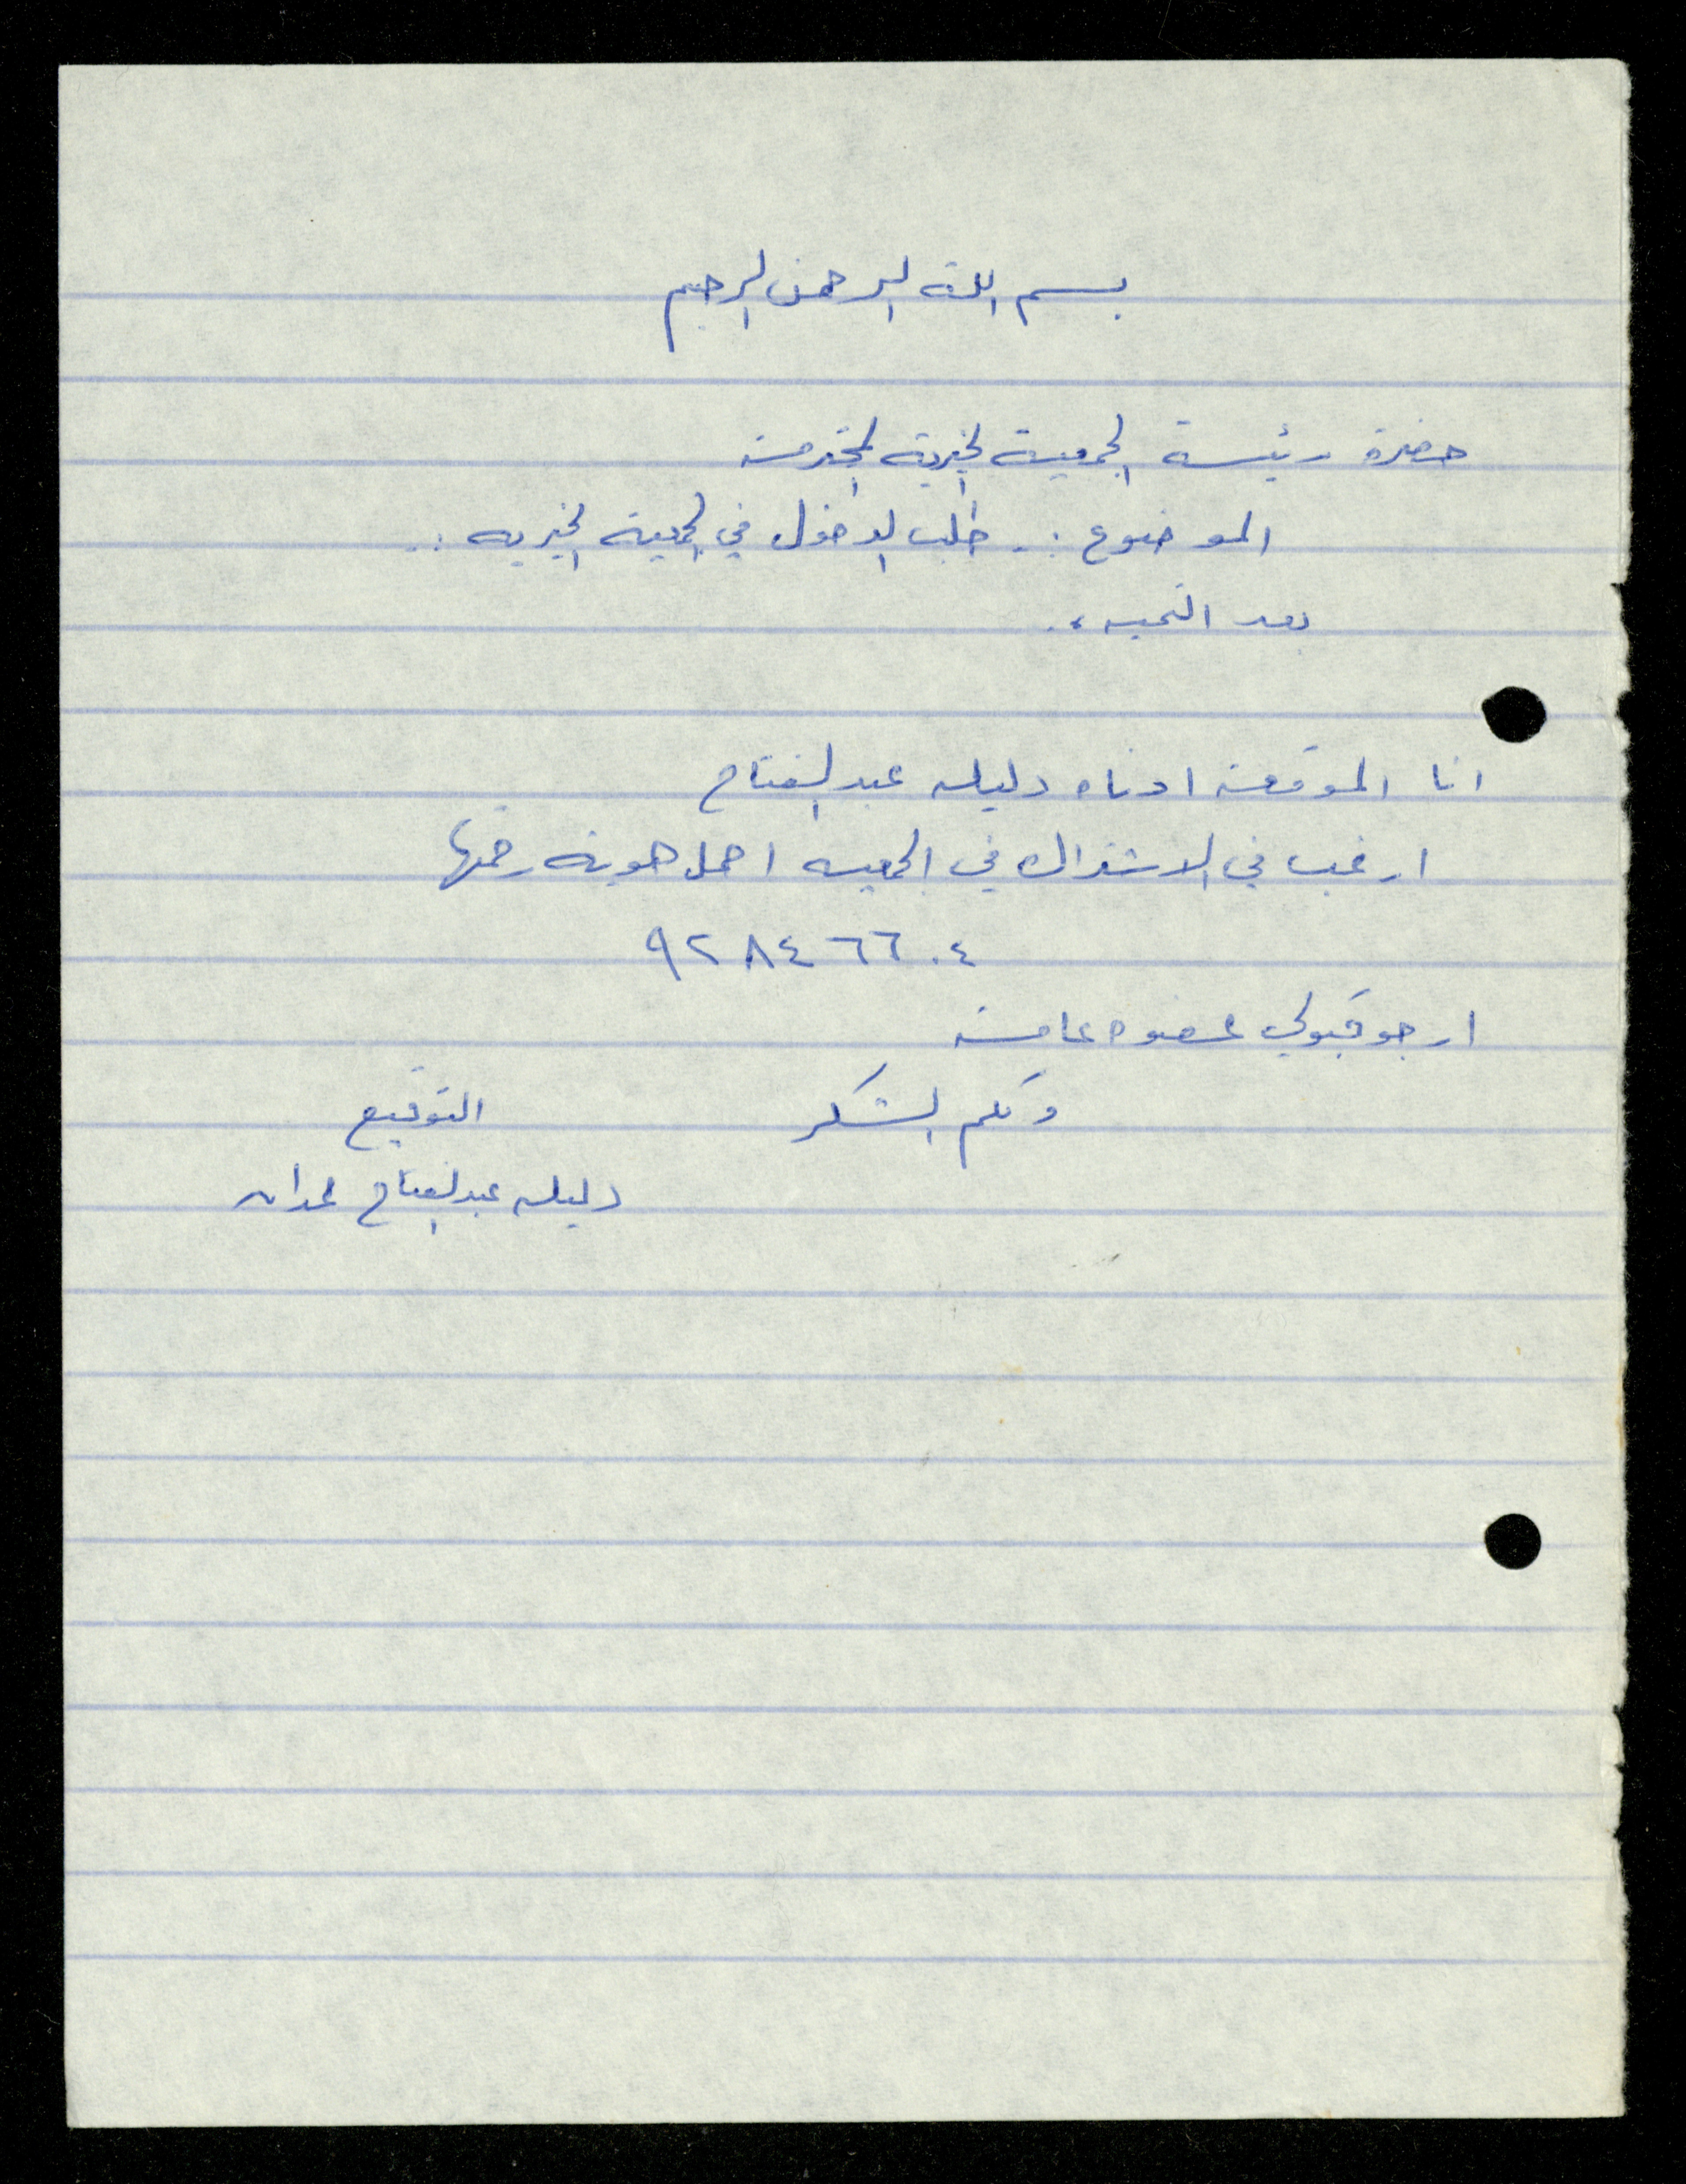 بسم الله الرحمن الرحيم
حضرة رئيسة الجمعية الخيرية المحترمة
الموضوع :. طلب الدخول في الجمعية الخيريه :.
بعد التحيه ،.
انا الموقعة ادناه دليله عبد الفتاح
ارغب في الاشتراك في الجمعيه احمل هوية رقمها
٩٢٨٤٦٦٠٤
ارجو قبولي عضوه عامة
ولكم الشكر
التوقيع
دليله عبد الفتاح